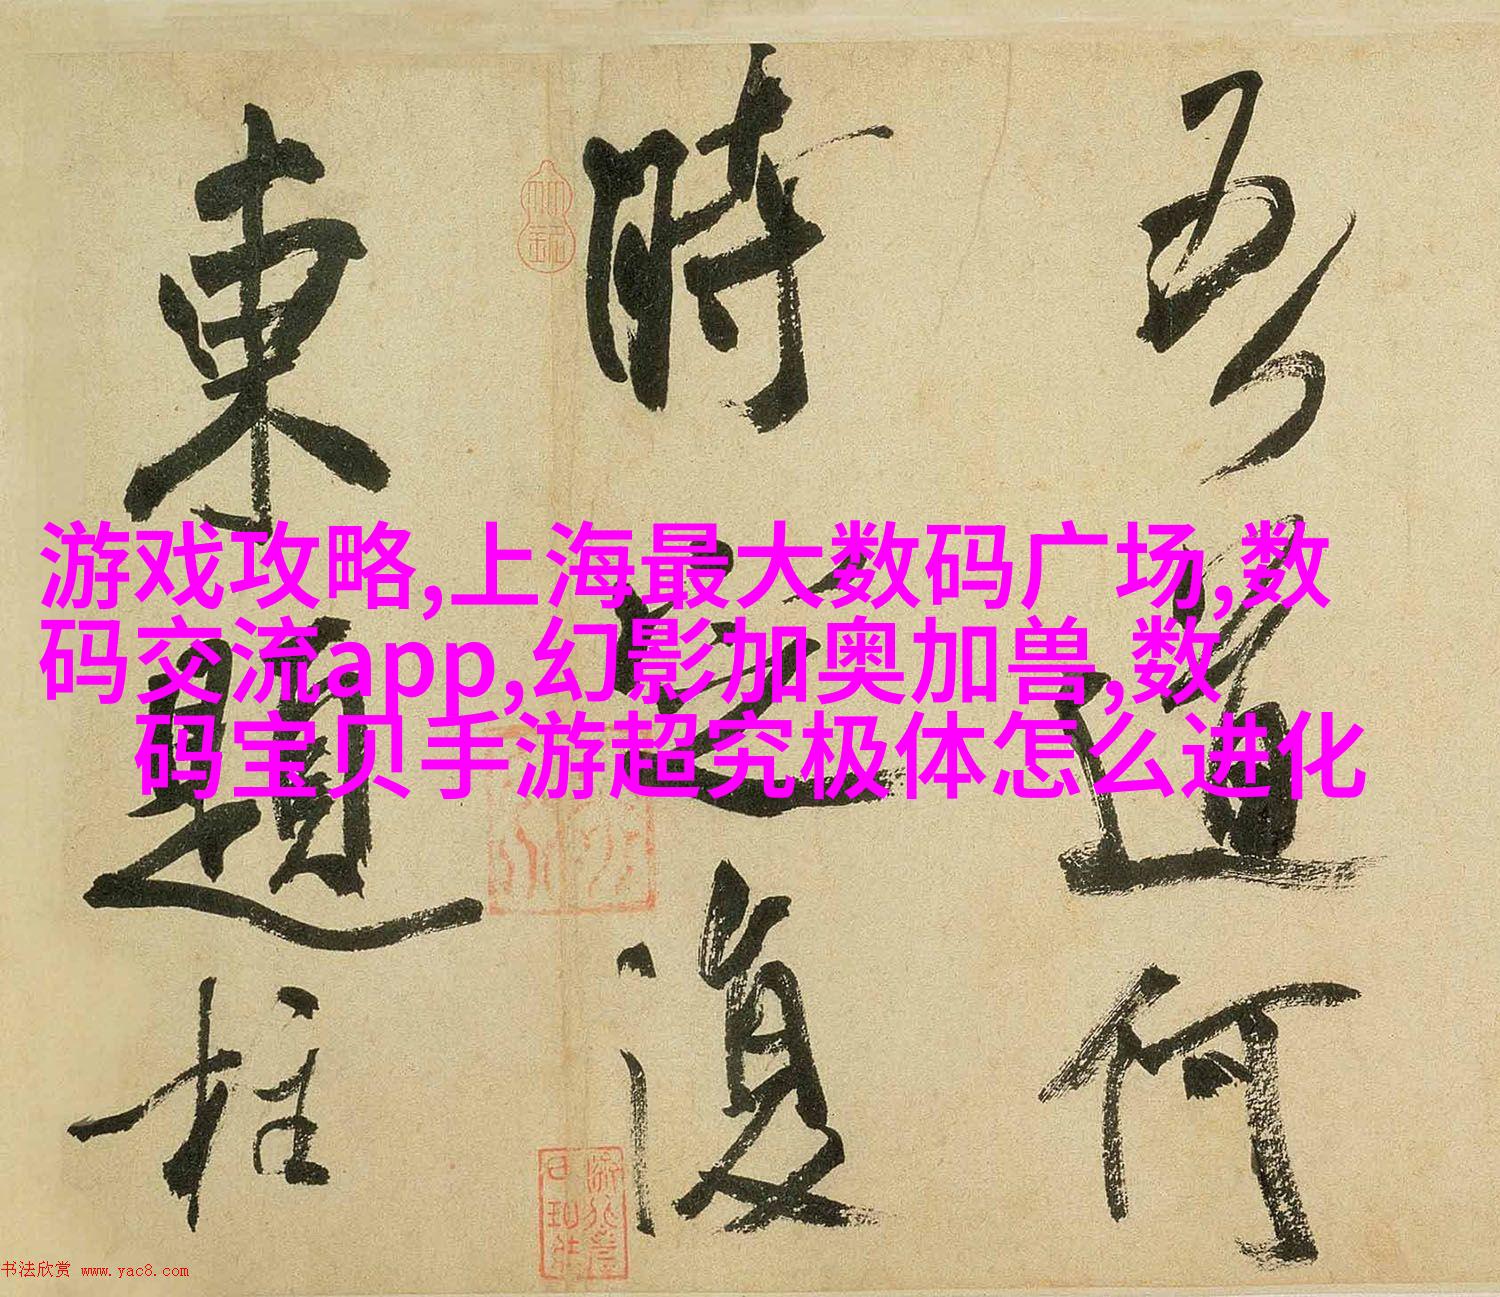 吾道何
時定復
東題柱
游戏攻略,上海最大数码广场,数
码交流app,幻影加奥加兽,数
码宝贝手游超究极体怎么进化
书法欣赏 www.yac8.com